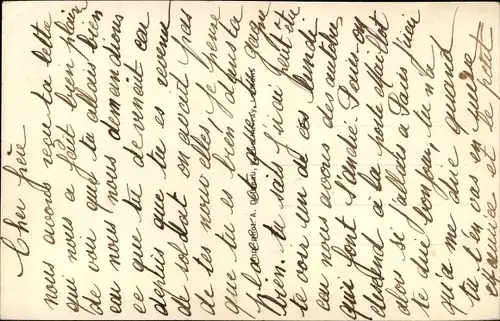 Cher frère
nous avons reçue ta lettre
qui nous a fait bien plaisir
de voir que tu allais bien
car nous nous demandions
ce que tu devenait car
depuis que tu es revenu
de soldat on avait pas
de tes nouvelles, Je pense
que tu es bien
place
bien. tu sais j'irai peut être
te voir un de ces lundi
car nous avons des autobus
qui font St André Paris on
descend à la porte
alors si j'allais a Paris j'irai
te dire bonjour, tu n'a
qu'a me dire quand
tu t'en vas en
et le petit